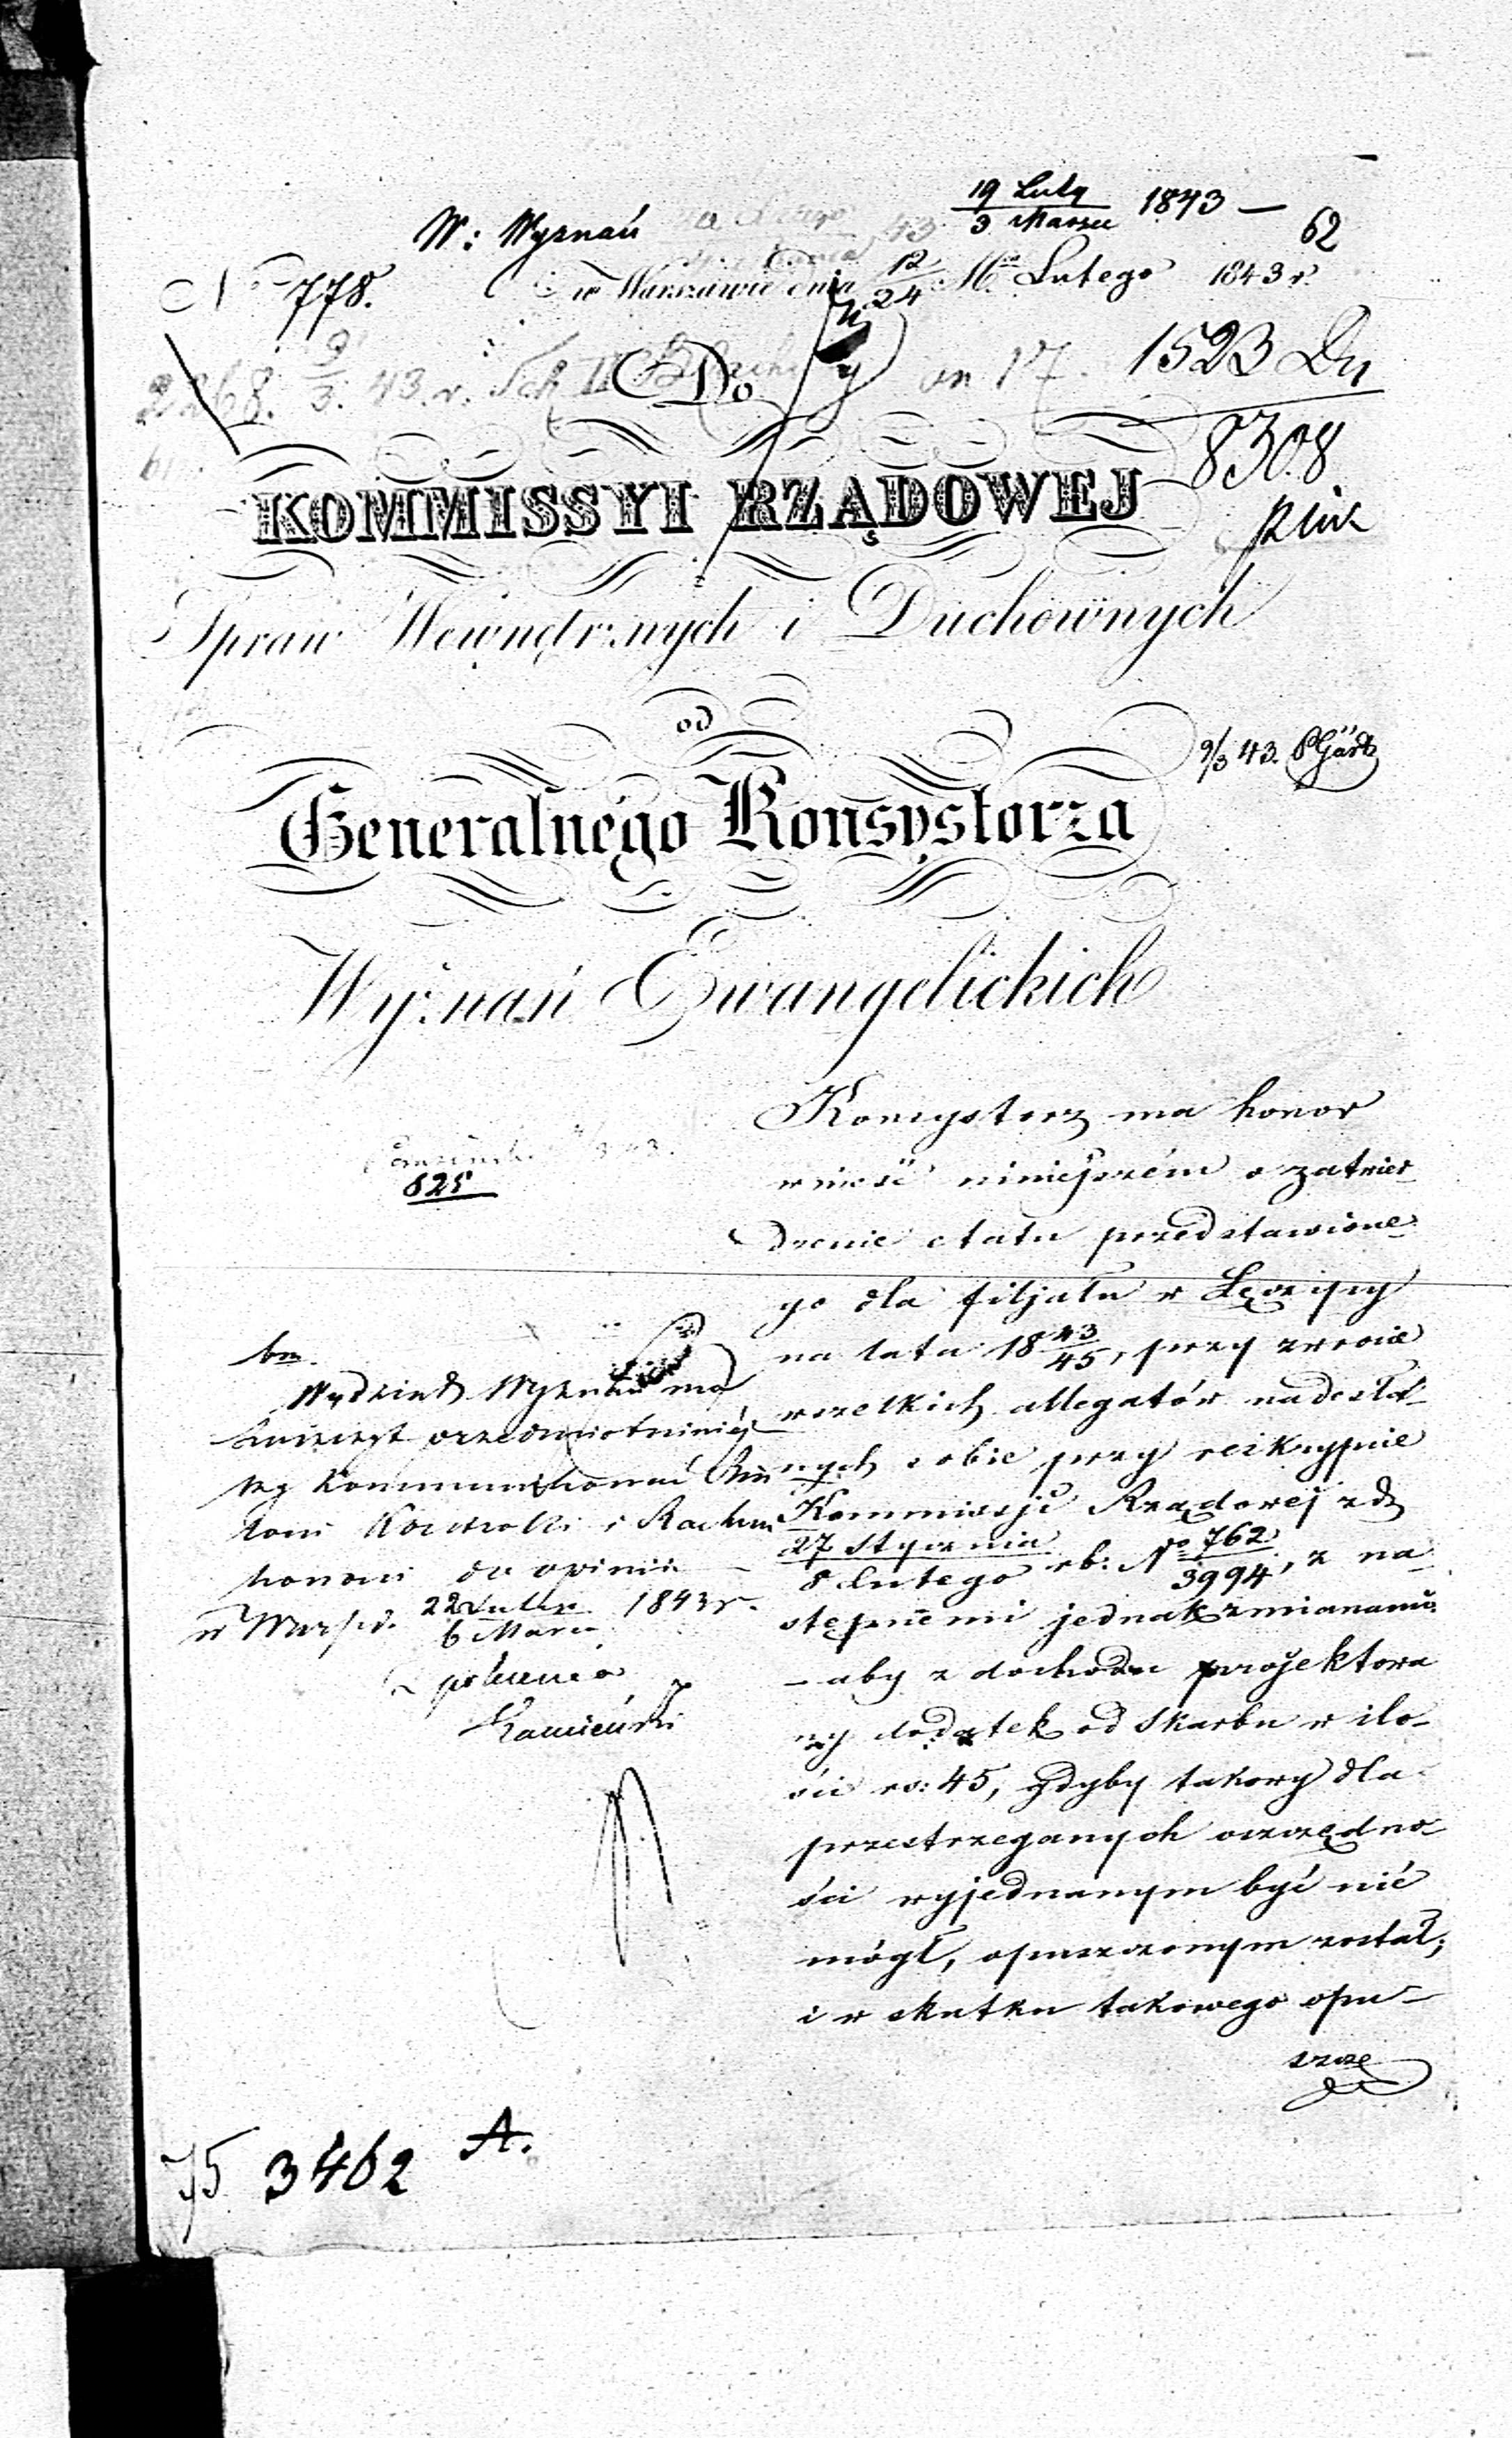 W: Wyznań 19 Luty / 3 Marca 1843 —
62
No 778. w Warszawie dnia 12/24 Mca Lutego 1843 r.
1523 Du
8308
2268. 9/3. 43. r.
Do
KOMMISSYI RZĄDOWEJ
Spraw Wewnętrznych i Duchownych
od
9/3 43.
Generalnego Konsystorza
Wyznań Ewangelickich
Konsystorz ma honor
wnieść niniejszém o zatwier
dzenie etatu przedstawione
go dla filjału w Łęczycy
na lata 18 43/45, przy zwrocie
wszelkich allegatów nadesła
nych sobie przy reskrypcie
Kommissji Rządowej z d.
27 Stycznia / 8 Lutego rb: No 762/3994, z na
stępnemi jednak zmianami:
– aby z dochodu projektowa
ny dodatek od Skarbu w ilo-
ści rs: 45, gdyby takowy dla
przestrzeganych oszczędno
ści wyjednanym być nié
mógł, opuszczonym został;
i w skutku takowego opu-
szcze
625
bm.
Wydział Wyznań ma
zaszczyt przedmiot niniej
szy kommunikować
Kontrolli i Rachun
kowości do opinii
w Warsz. 22 Lutego / 6 Marca 1843 r.
z polecenia
Kamieński
75 3462 A.